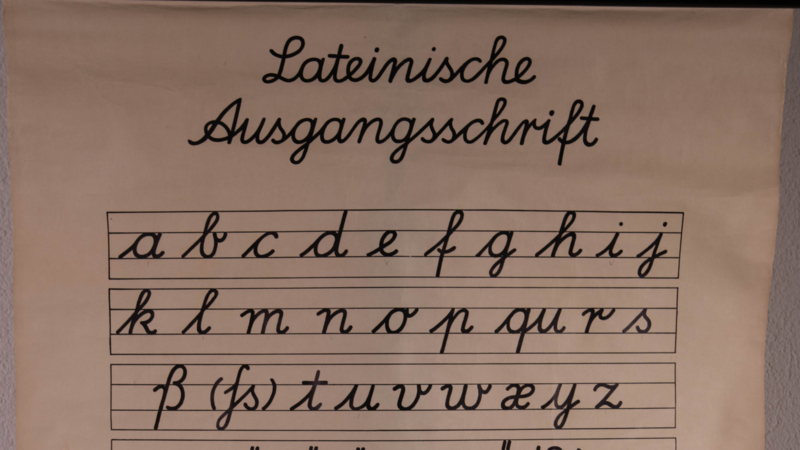 Lateinische
Ausgangsschrift
a b c d e f g h i j
k l m n o p qu r s
ß (ſs) t u v w x y z